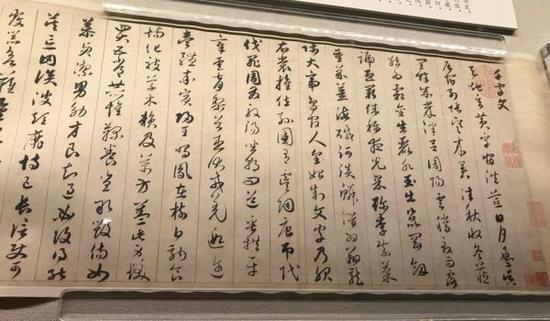 千字文
天地玄黃宇宙洪荒日月盈昃
辰宿列張寒來暑往秋收冬藏
閏餘成歲律呂調陽雲騰致雨露
結為霜金生麗水玉出崑岡劍
號巨闕珠稱夜光果珍李柰菜
重芥薑海鹹河淡鱗潛羽翔龍
師火帝鳥官人皇始制文字乃服
衣裳推位讓國有虞陶唐弔民
伐罪周發殷湯坐朝問道垂拱平
章愛育黎首臣伏戎羌遐邇
壹體率賓歸王鳴鳳在樹白駒食
場化被草木賴及萬方蓋此身髮
四大五常恭惟鞠養豈敢毀傷女
慕貞潔男效才良知過必改得能
莫忘罔談彼短靡恃己長信使可
覆器欲難量墨